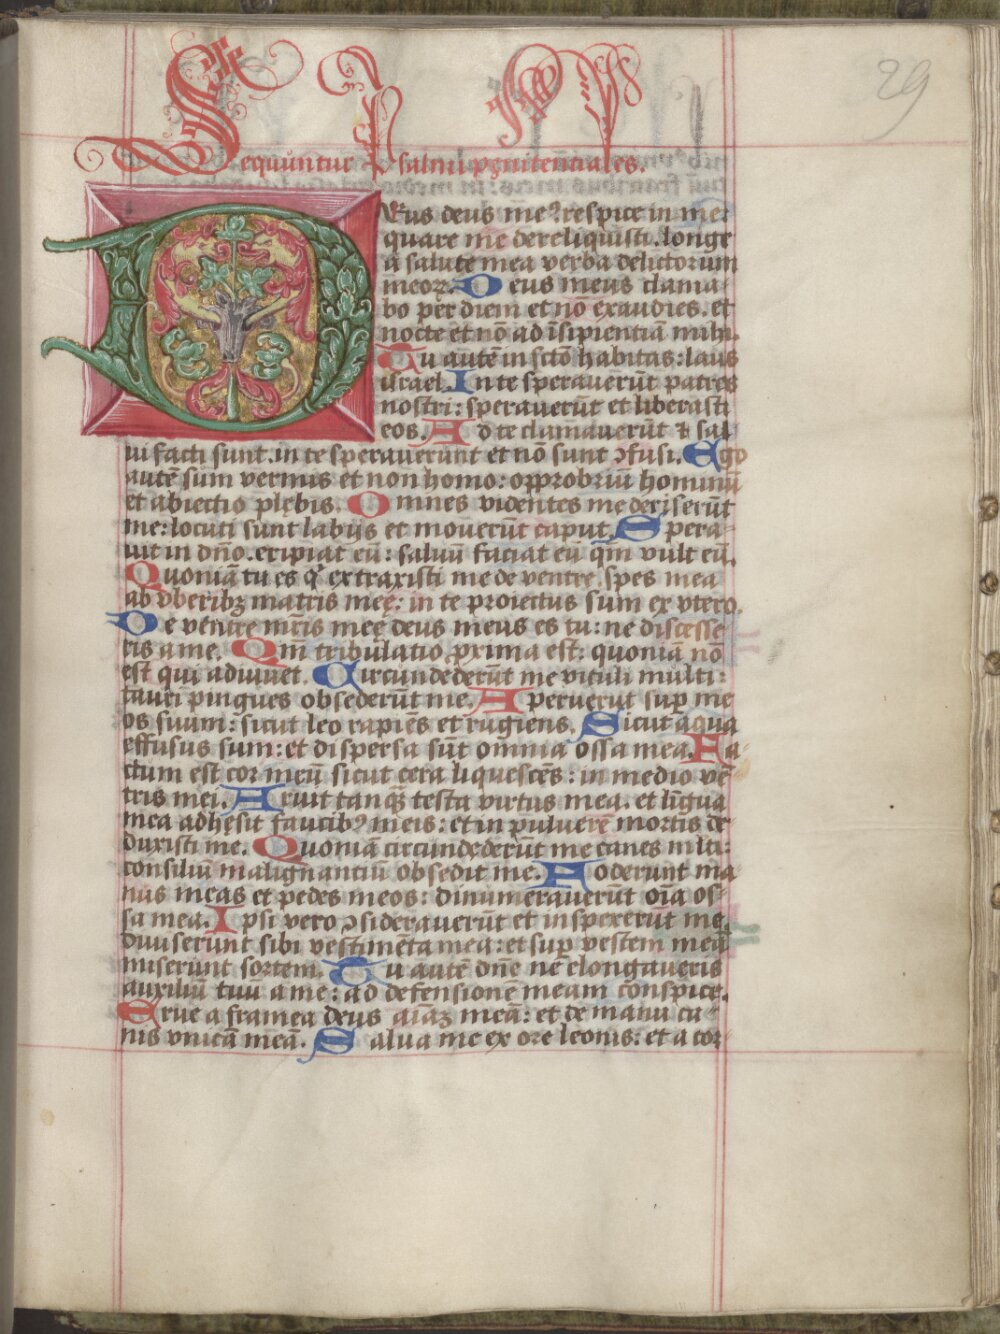 29
Sequuntur Psalmi pęnitentiales.
Deus deus me9 respice in me:
quare me dereliquisti. longe
a salute mea verba delictorum
meoꝝ. Deus meus clama-
bo per diem et nō exaudies. et
nocte et nō ad īsipientiā mihi.
Tu autē in sctō habitas: laus
israel. In te sperauerūt patres
nostri: sperauerūt et liberasti
eos. Ad te clamauerūt ⁊ sal
ui facti sunt. in te sperauerunt et nō sunt ↄfusi. Ego
autē sum vermis et non homo: opprobriū hominū
et abiectio plębis. Omnes videntes me deriserūt
me: locuti sunt labijs et mouerūt caput. Spera
uit in dño. eripiat eū: saluū faciat eū qm̄ vult eū.
Quoniā tu es qͥ extraxisti me de ventre. spes mea
ab vberibꝫ matris meę: in te proiectus sum ex vtero.
De ventre mr̄is meę deus meus es tu: ne discesse
ris a me. Qm̄ tribulatio ꝓxima est: quoniā nō
est qui adiuuet. Circundederūt me vituli multi:
tauri pingues obsederūt me. Aperuerūt sup̄ me
os suum: sicut leo rapiēs et rugiens. Sicut aqua
effusus sum: et dispersa sūt omnia ossa mea. Fa
ctum est cor meū sicut cera liquescēs: in medio vē
tris mei. Aruit tanqꝫ testa virtus mea. et lingua
mea adhęsit faucibꝰ meis: et in puluerē mortis de
duxisti me. Quoniā circundęderūt me canes mlti:
consiliū malignantiū obsedit me. Foderunt ma
nus meas et pedes meos: dinumerauerūt oīa os-
sa mea. Ipsi vero ↄsiderauerūt et inspexerūt me.
diuiserunt sibi vestimēta mea: et sup̄ vestem meā
miserunt sortem. Tu autē dñe ne elongaueris
auxiliū tuū a me: ad defensionē meam conspice.
Erue a framea deus aīaꝫ meā: et de manu ca-
nis vnicā meā. Salua me ex ore leonis: et a cor